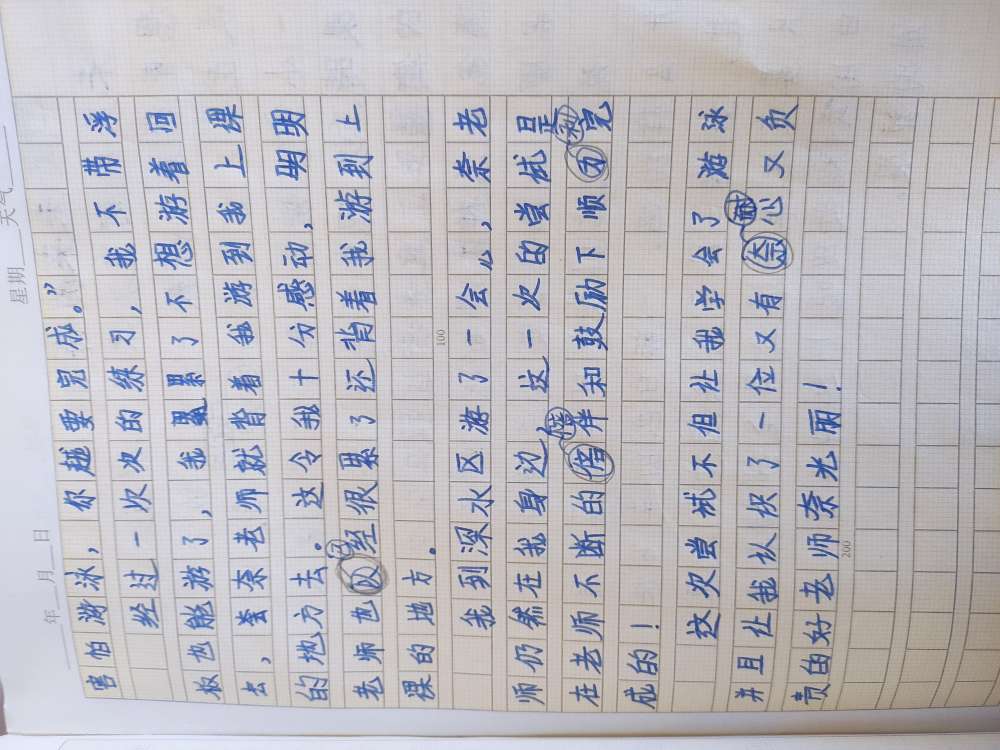 年 月 日 星期 天气
害怕游泳，你越要完成。”
经过一次次的练习，我不带浮
板也能游了，我累了不想游着回
去，奈老师就背着我游到我上课
的地方去。这令我十分感动，明明
老师也已经很累了还背着我游到上
课的地方。
100
我到深水区游了一会儿，奈老
师仍然在我身边，这一次的尝试是
在老师不断的陪伴和鼓励下顺利完
成的！
这次尝试不但让我学会了游泳
并且让我认识了一位又有耐心又负
责的好老师奈光丽！
200